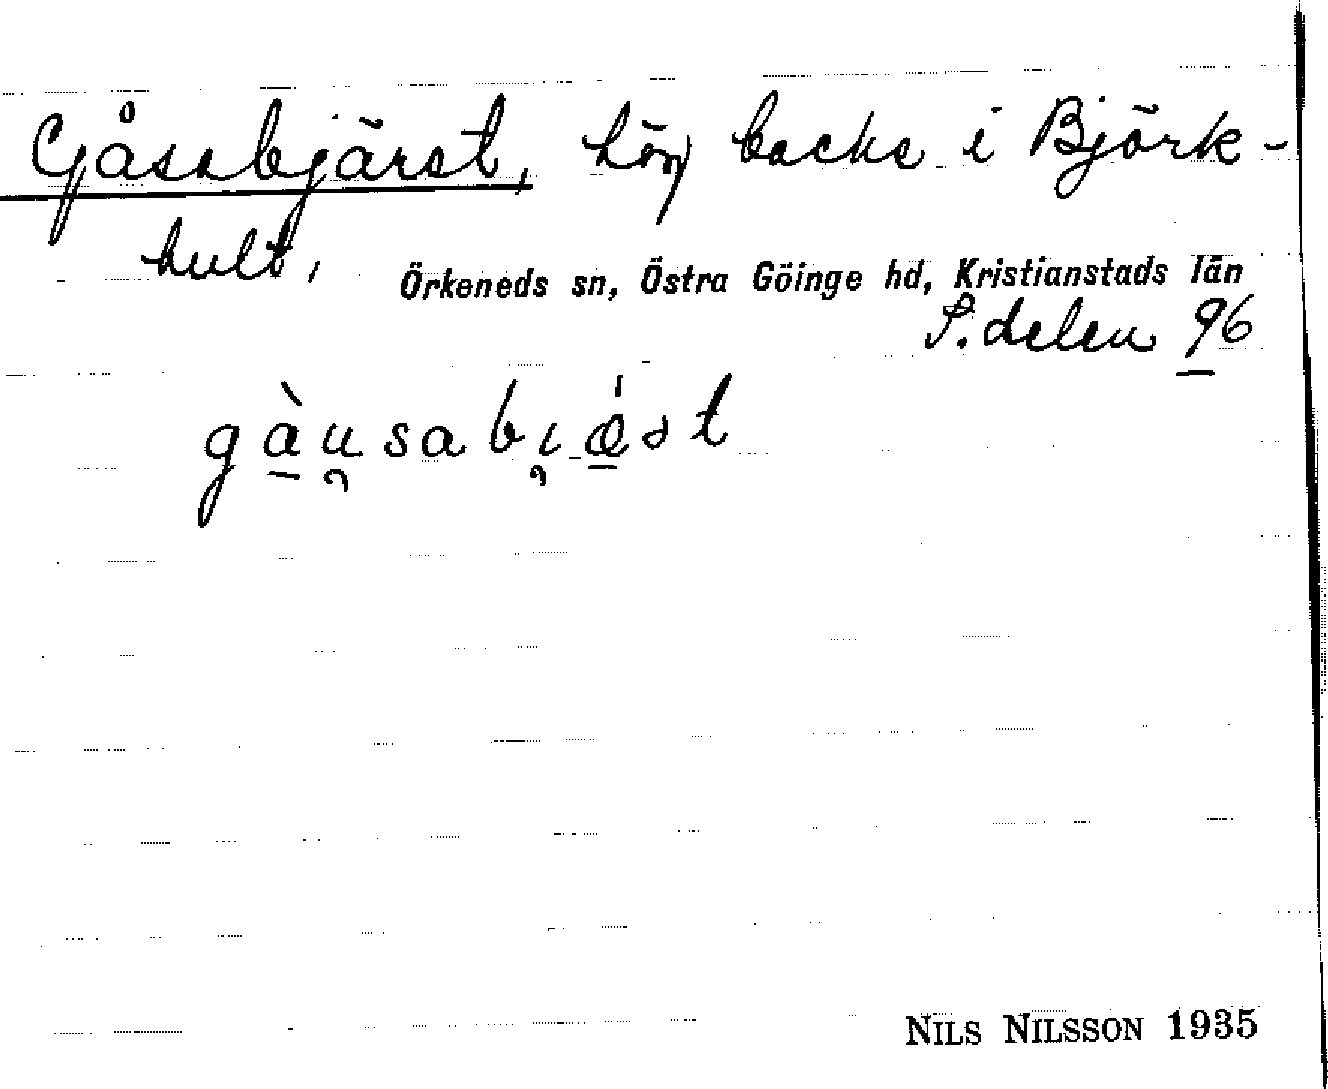 Gåsabjärst, hög backe i Björk-
hult,
Örkeneds sn, Östra Göinge hd, Kristianstads län
S. delen 96
gàu̯sabı̯æ̀st
NILS NILSSON 1935